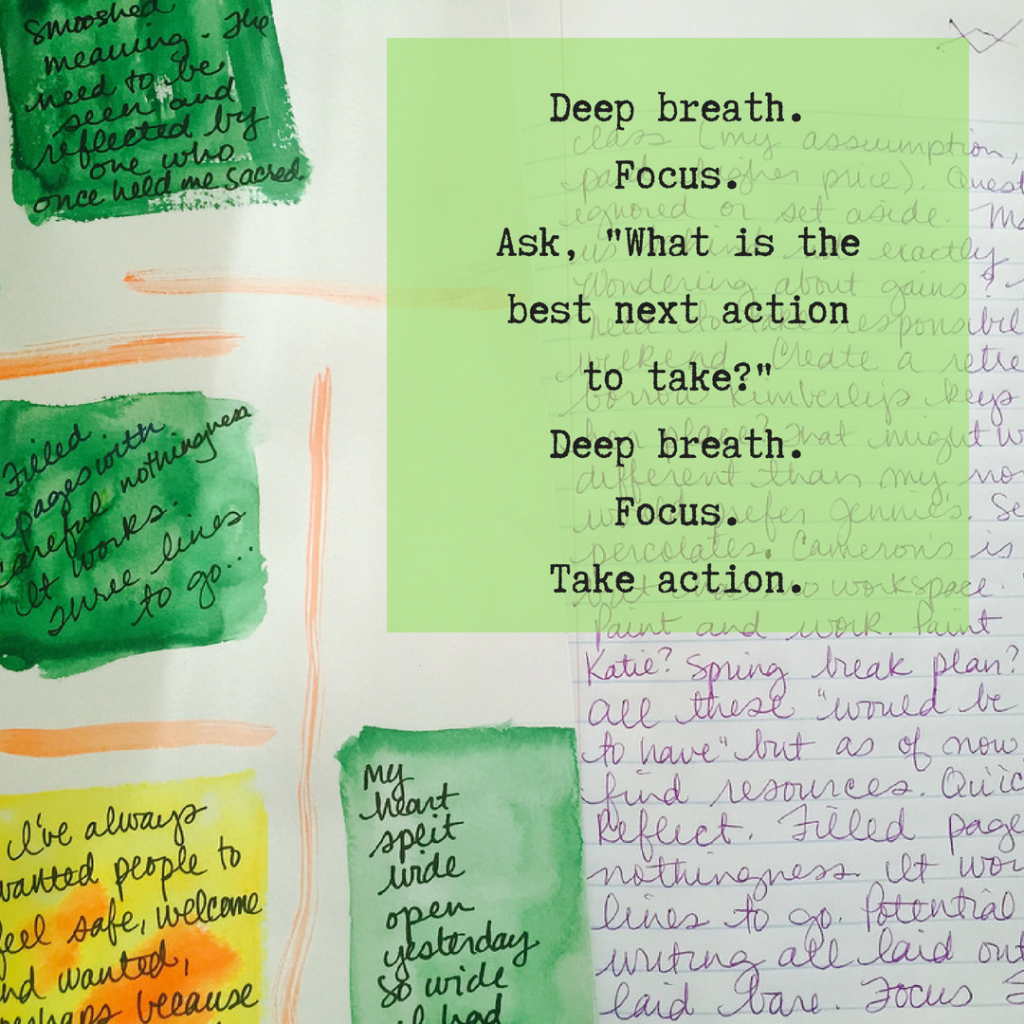 Smooshed
meaning. The
need to be
seen and
reflected by
one who
once held me sacred
Filled
pages with
careful nothingness
It works.
Three lines
to go...
I've always
wanted people to
feel safe, welcome
and wanted,
perhaps because
My
heart
split
wide
open
yesterday
so wide
it had
Deep breath.
Focus.
Ask, "What is the
best next action
to take?"
Deep breath.
Focus.
Take action.
class (my assumption,
higher price). Quest
ignored or set aside.
exactly
Wondering about gains?
need to take responsibil
weekend. Create a retre
borrow Kimberly's keys
place? That might w
different than my no
prefer Jennie's. Se
percolates. Cameron's is
workspace.
Paint and work. Paint
Katie? Spring break plan?
All these "would be
to have" but as of now
find resources. Quic
Reflect. Filled page
nothingness. It wor
lines to go. Potential
writing all laid out
laid bare. Focus